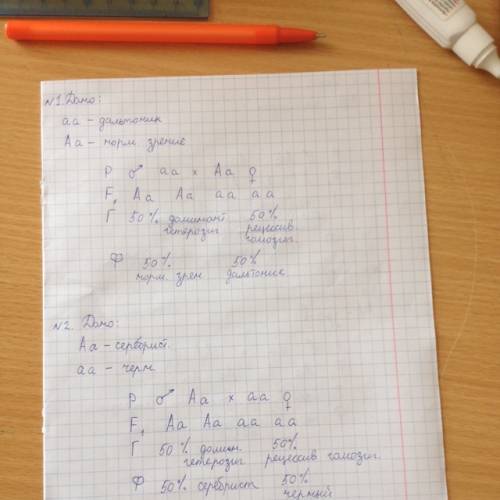 N1. Дано:
аа – дальтоник
Аа – норм. зрение
Р ♂ аа × Аа ♀
F₁ Аа Аа аа аа
Г 50% доминант. 50%
гетерозиг рецессив.
гомозиг.
Ф 50% 50%
норм. зрен дальтоник
N2. Дано:
Аа – серебрист.
аа – черн
Р ♂ Аа × аа ♀
F₁ Аа Аа аа аа
Г 50% домин. 50%
гетерозиг рецессив гомозиг.
Ф 50% серебрист 50%
черный